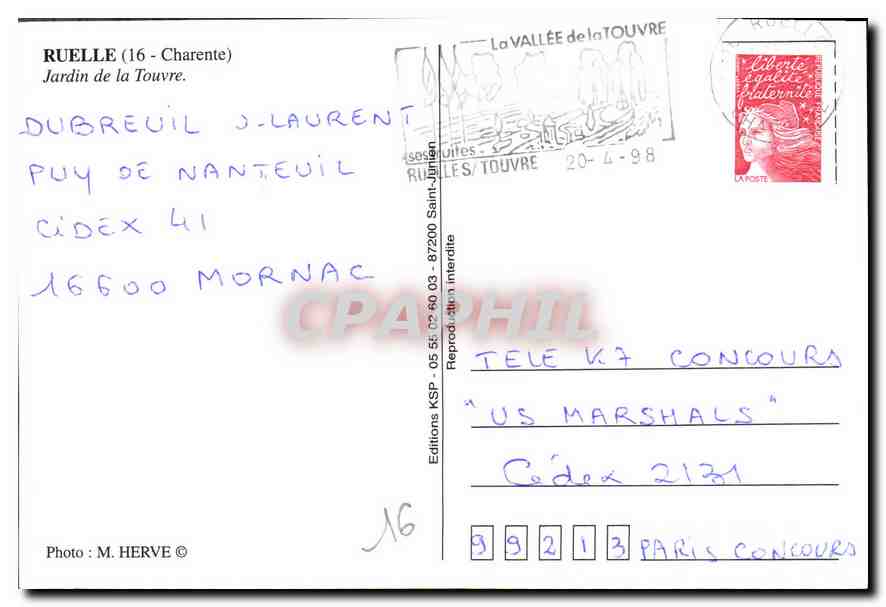 RUELLE (16 - Charente)
Jardin de la Touvre.
DUBREUIL J-LAURENT
PUY DE NANTEUIL
CiDEX 41
16600 MORNAC
La VALLÉE de la TOUVRE
ses truites -
RUELLES/TOUVRE 20-4-98
RUELLE
liberté
égalité
fraternité
REPUBLIQUE FRANÇAISE
LA POSTE
Editions KSP - 05 55 02 60 03 - 87200 Saint-Junien
Reproduction interdite
CPAPHIL
TELE K7 CONCOURS
"US MARSHALS"
Cédex 2131
99213 PARIS CONCOURS
16
Photo : M. HERVE ©